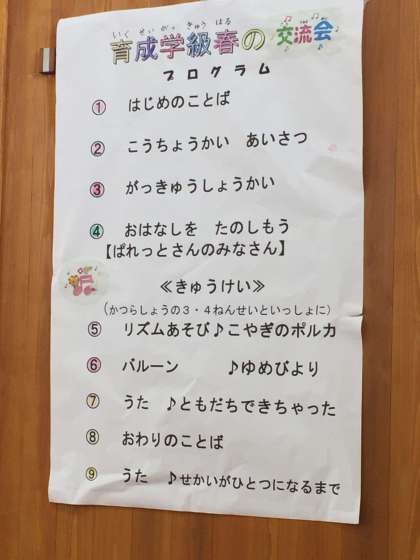 いく せい がっ きゅう はる
育成学級春の 交流会
プログラム
① はじめのことば
② こうちょうかい あいさつ
③ がっきゅうしょうかい
④ おはなしを たのしもう
【ぱれっとさんのみなさん】
≪きゅうけい≫
(かつらしょうの3・4ねんせいといっしょに)
⑤ リズムあそび♪こやぎのポルカ
⑥ バルーン ♪ゆめびより
⑦ うた ♪ともだちできちゃった
⑧ おわりのことば
⑨ うた ♪せかいがひとつになるまで